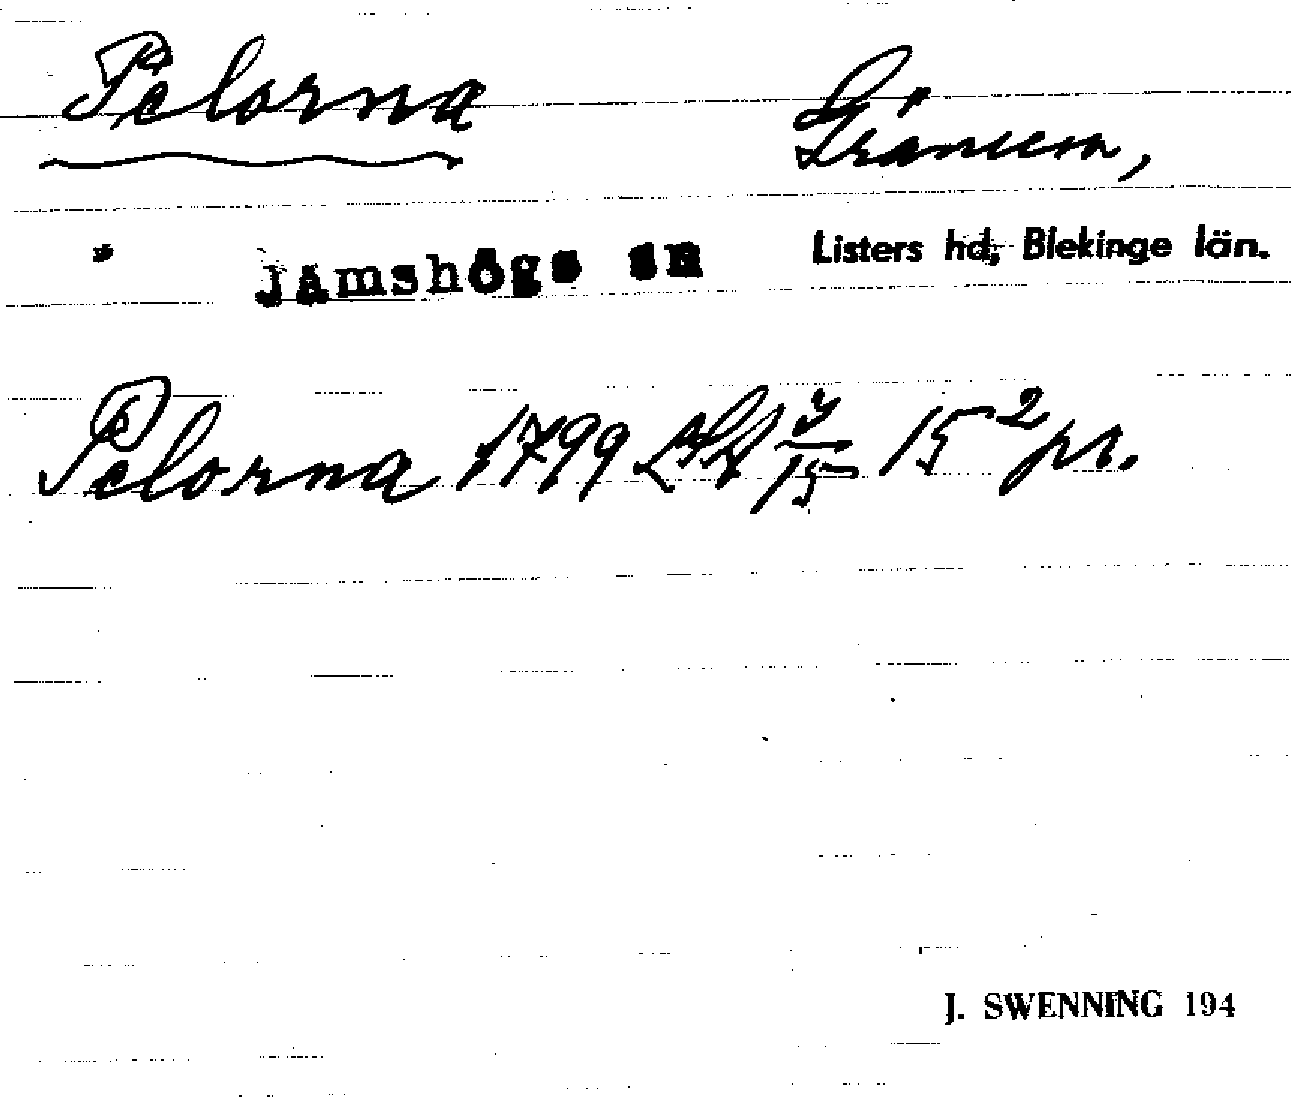 Pelorna Gränum,
Jämshögs sn Listers hd, Blekinge län.
Pelorna 1799 LSA 4/15 15² pr.
J. SWENNING 194